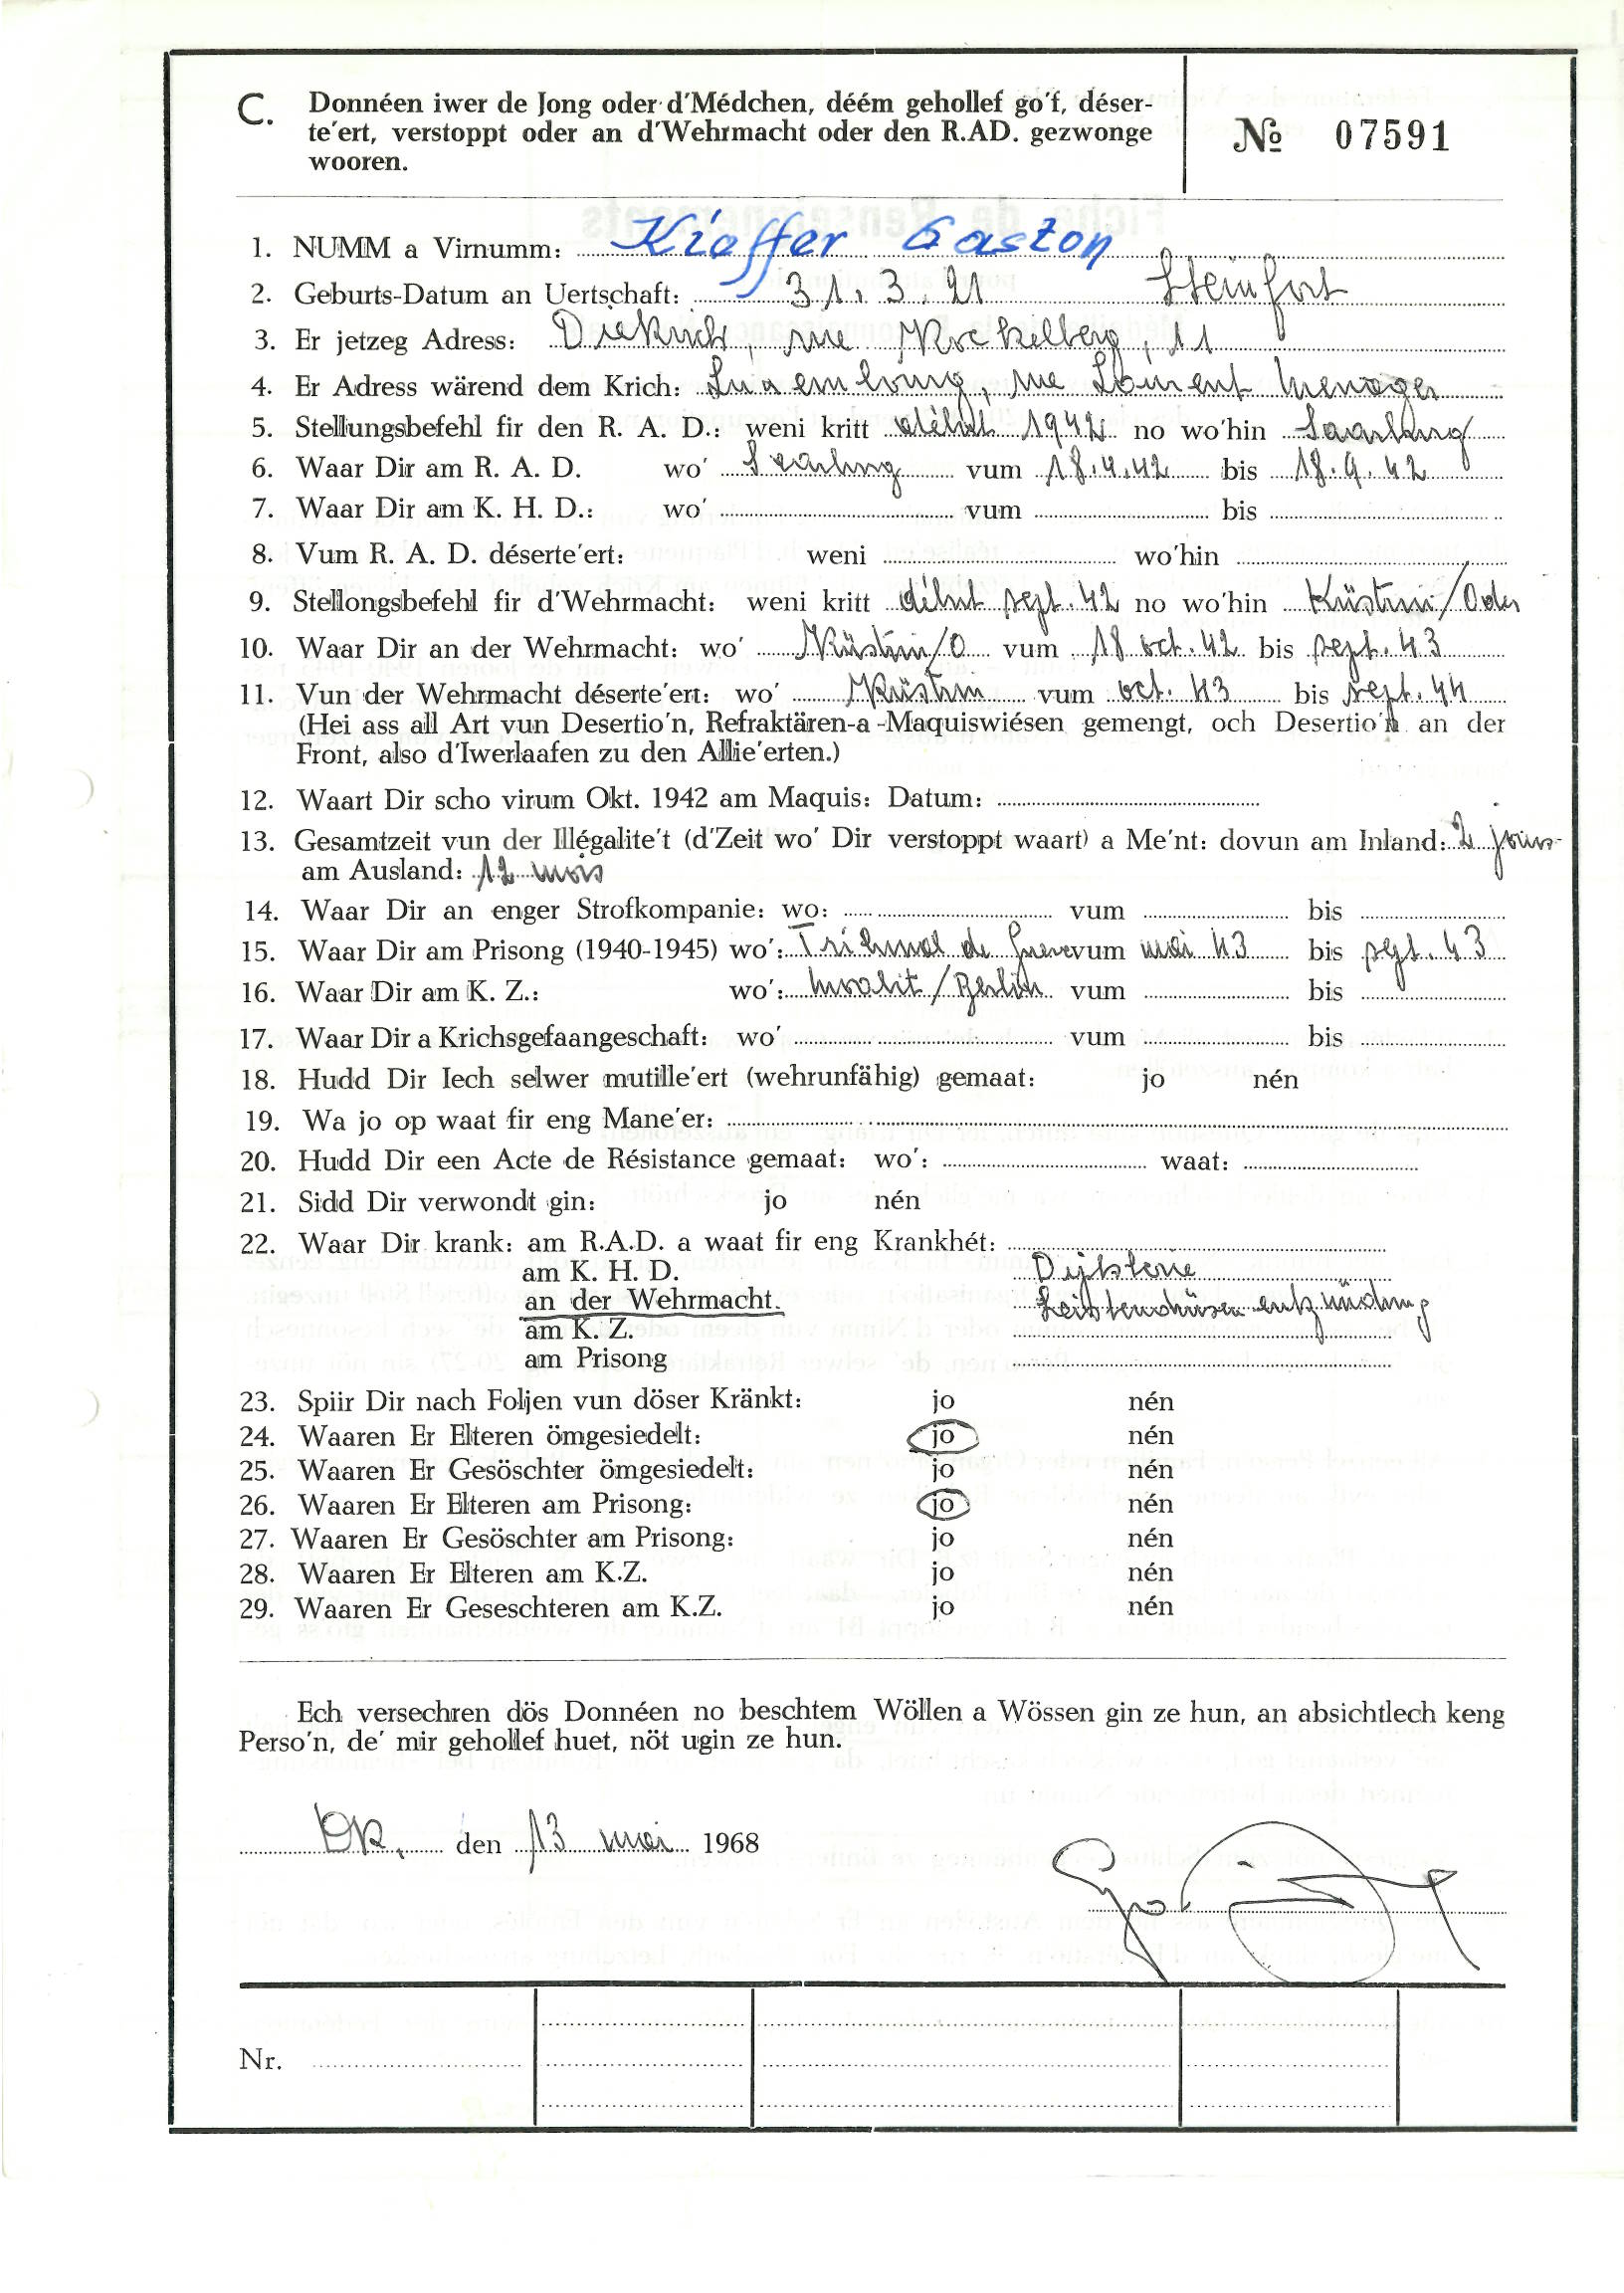 C. Donnéen iwer de Jong oder d'Médchen, déém gehollef go'f, déser-
te'ert, verstoppt oder an d'Wehrmacht oder den R.AD. gezwonge
wooren.
№ 07591
1. NUMM a Virnumm: Kieffer Gaston
2. Geburts-Datum an Uertschaft: 31. 3. 21 Steinfort
3. Er jetzeg Adress: Diekirch, rue Kockelberg, 11
4. Er Adress wärend dem Krich: Luxembourg, rue Laurent Menager
5. Stellungsbefehl fir den R. A. D.: weni kritt début 1942 no wo'hin Saarburg
6. Waar Dir am R. A. D. wo' Saarburg vum 18.4.42 bis 18.9.42
7. Waar Dir am K. H. D.: wo' vum bis
8. Vum R. A. D. déserte'ert: weni wo'hin
9. Stellongsbefehl fir d'Wehrmacht: weni kritt début sept. 42 no wo'hin Küstrin/Oder
10. Waar Dir an der Wehrmacht: wo' Küstrin/O vum 18 oct. 42 bis sept. 43
11. Vun der Wehrmacht déserte'ert: wo' Küstrin vum oct. 43 bis sept. 44
(Hei ass all Art vun Desertio'n, Refraktären-a-Maquiswiésen gemengt, och Desertio'n an der
Front, also d'Iwerlaafen zu den Allie'erten.)
12. Waart Dir scho virum Okt. 1942 am Maquis: Datum:
13. Gesamtzeit vun der Illégalite't (d'Zeit wo' Dir verstoppt waart) a Me'nt: dovun am Inland: 2 jours
am Ausland: 12 mois
14. Waar Dir an enger Strofkompanie: wo: vum bis
15. Waar Dir am Prisong (1940-1945) wo': Tribunal de guerre vum mai 43 bis sept. 43
16. Waar Dir am K. Z.: wo': Moabit/Berlin vum bis
17. Waar Dir a Krichsgefaangeschaft: wo' vum bis
18. Hudd Dir Iech selwer mutille'ert (wehrunfähig) gemaat: jo nén
19. Wa jo op waat fir eng Mane'er:
20. Hudd Dir een Acte de Résistance gemaat: wo': waat:
21. Sidd Dir verwondt gin: jo nén
22. Waar Dir krank: am R.A.D. a waat fir eng Krankhét:
am K. H. D. Diphterie
an der Wehrmacht. Leistendrüsenentzündung
am K. Z.
am Prisong
23. Spiir Dir nach Foljen vun döser Kränkt: jo nén
24. Waaren Er Elteren ömgesiedelt: jo nén
25. Waaren Er Gesöschter ömgesiedelt: jo nén
26. Waaren Er Elteren am Prisong: jo nén
27. Waaren Er Gesöschter am Prisong: jo nén
28. Waaren Er Elteren am K.Z. jo nén
29. Waaren Er Geseschteren am K.Z. jo nén
Ech versechren dös Donnéen no beschtem Wöllen a Wössen gin ze hun, an absichtlech keng
Perso'n, de' mir gehollef huet, nöt ugin ze hun.
den 13 mai 1968
Nr.